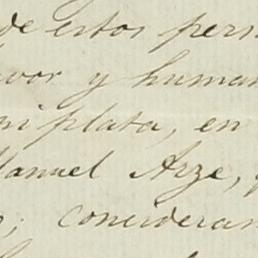 de estos pers
vor y human
ni plata, en
Manuel Arze,
; concideran